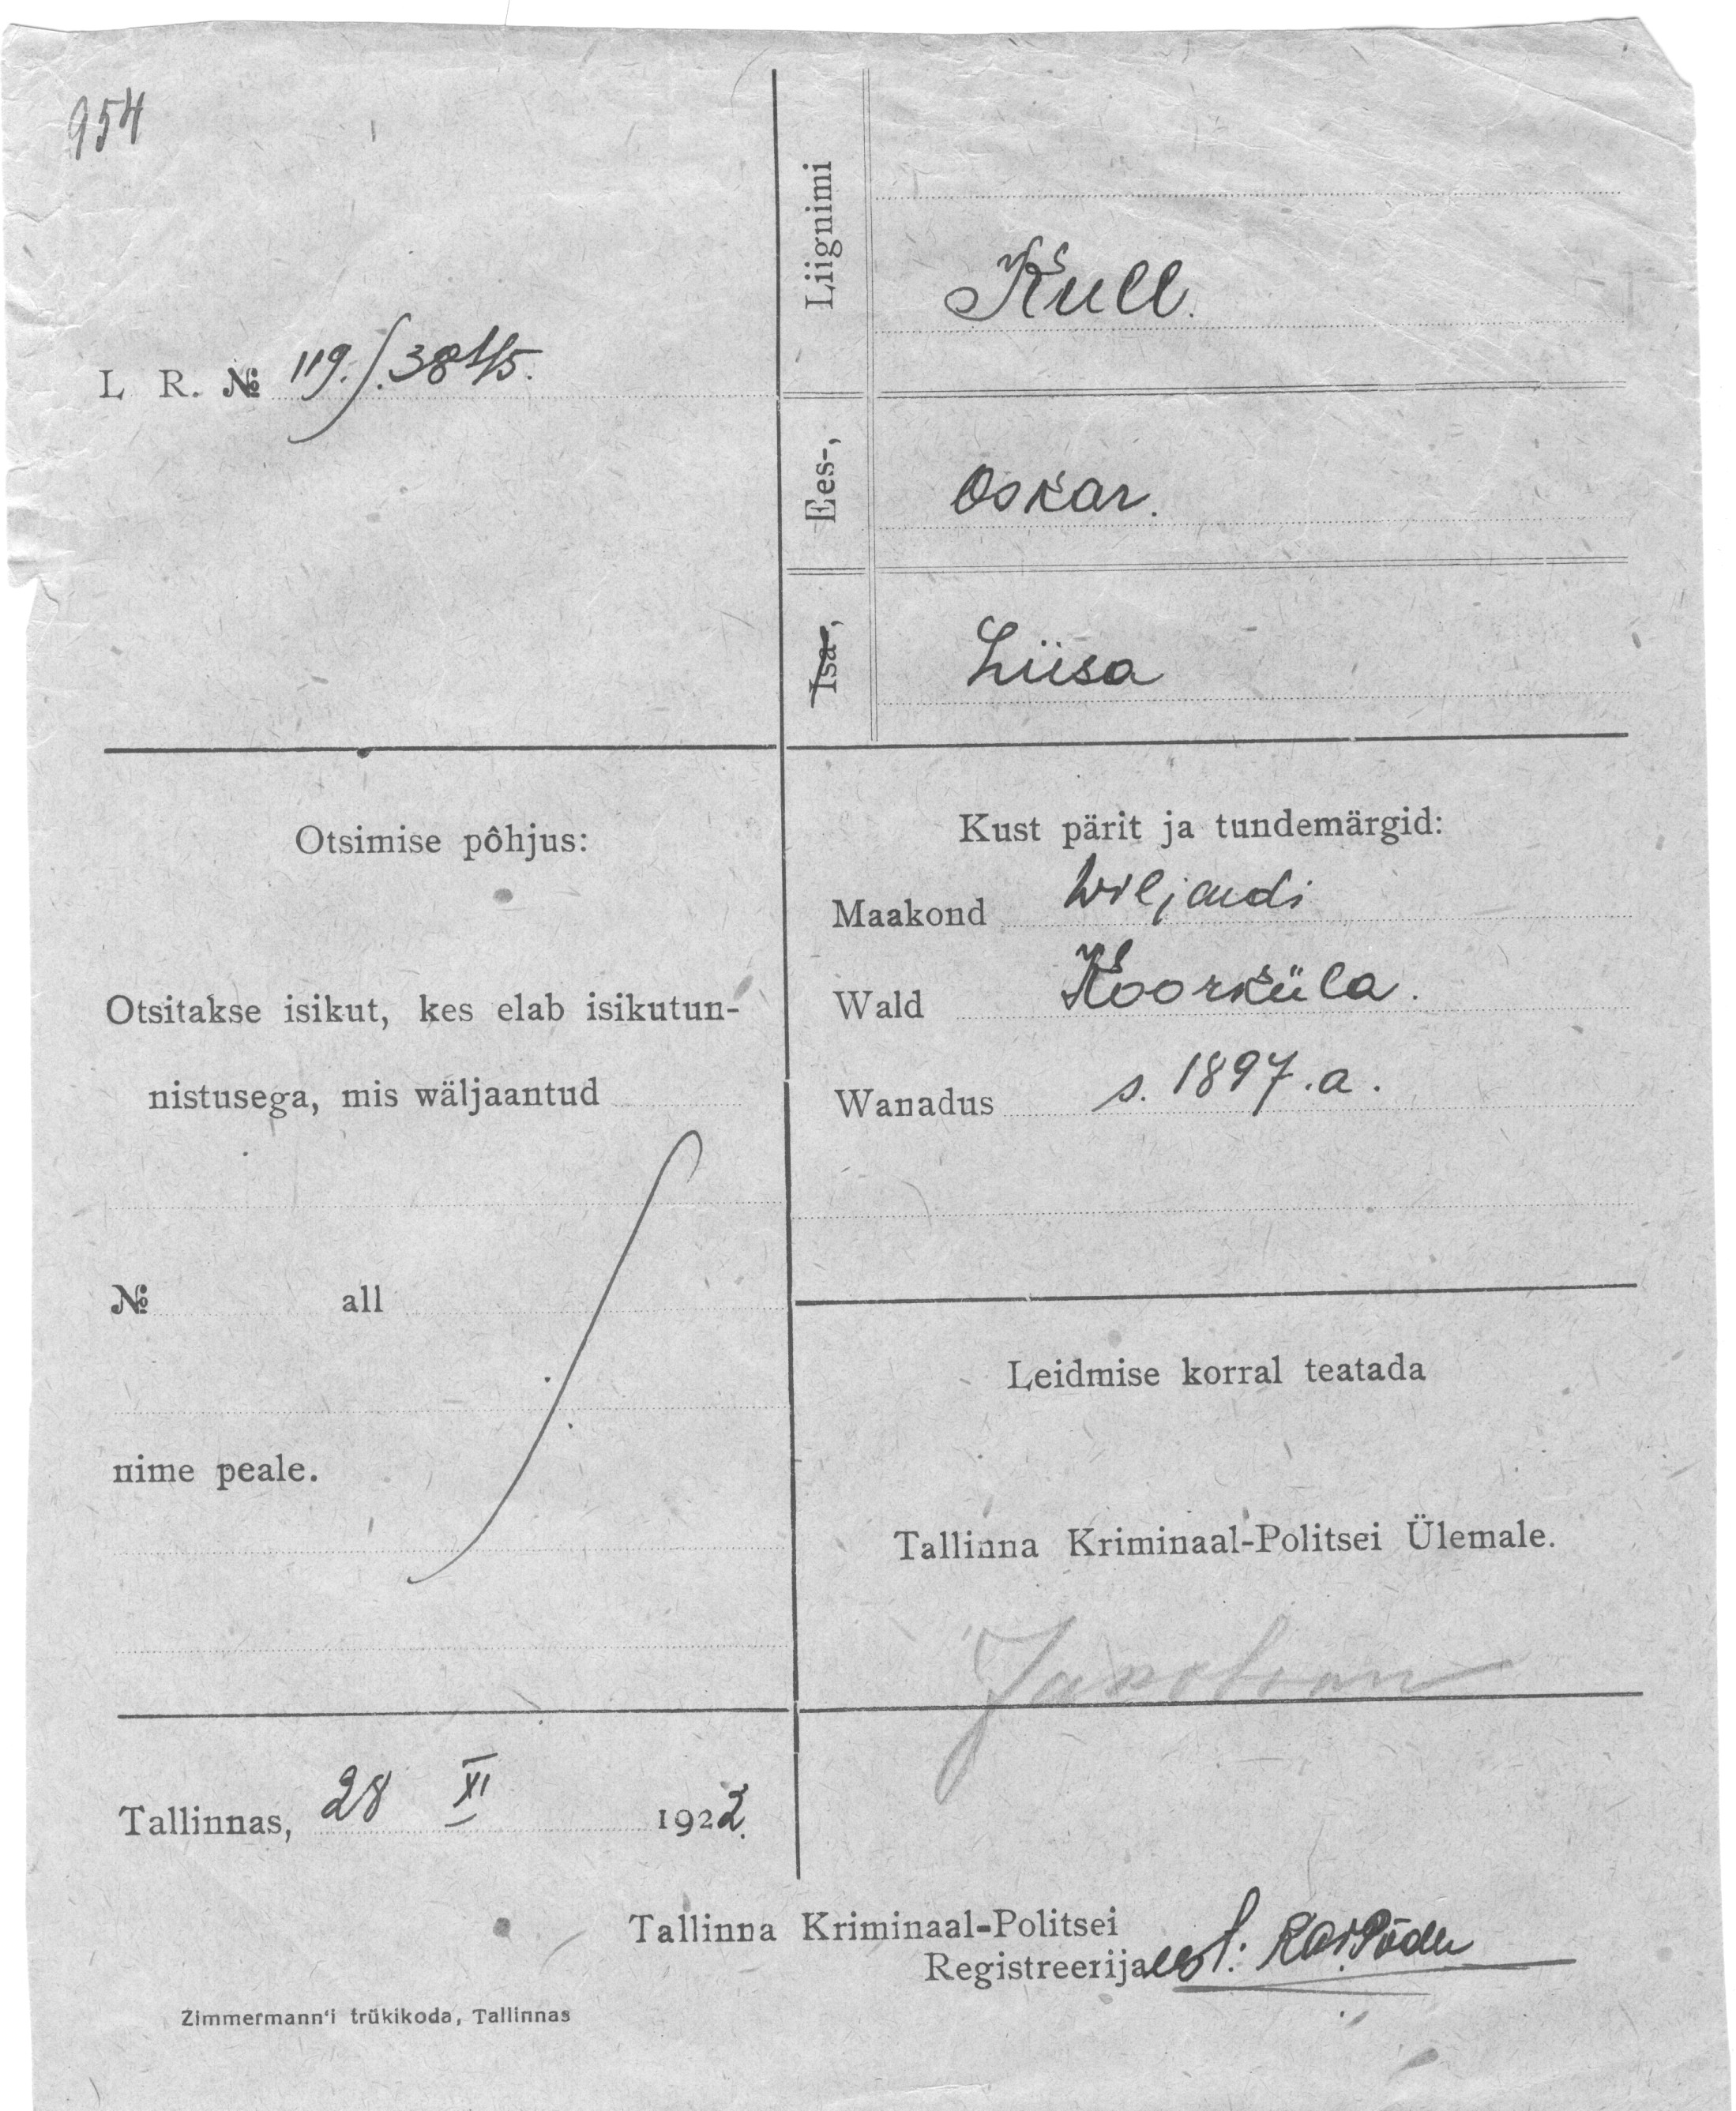 954
L R. № 119./.38 1/15.
Liignimi
Kull.
Ees-,
Oskar.
Isa-,
Liisa
Otsimise põhjus:
Otsitakse isikut, kes elab isikutun-
nistusega, mis wäljaantud
№ all
nime peale.
Kust pärit ja tundemärgid:
Maakond Wiljandi
Wald Koorküla.
Wanadus s. 1897.a.
Leidmise korral teatada
Tallinna Kriminaal-Politsei Ülemale.
Tallinnas, 28 XI 1922.
Tallinna Kriminaal-Politsei
Registreerija
Zimmermann'i trükikoda, Tallinnas